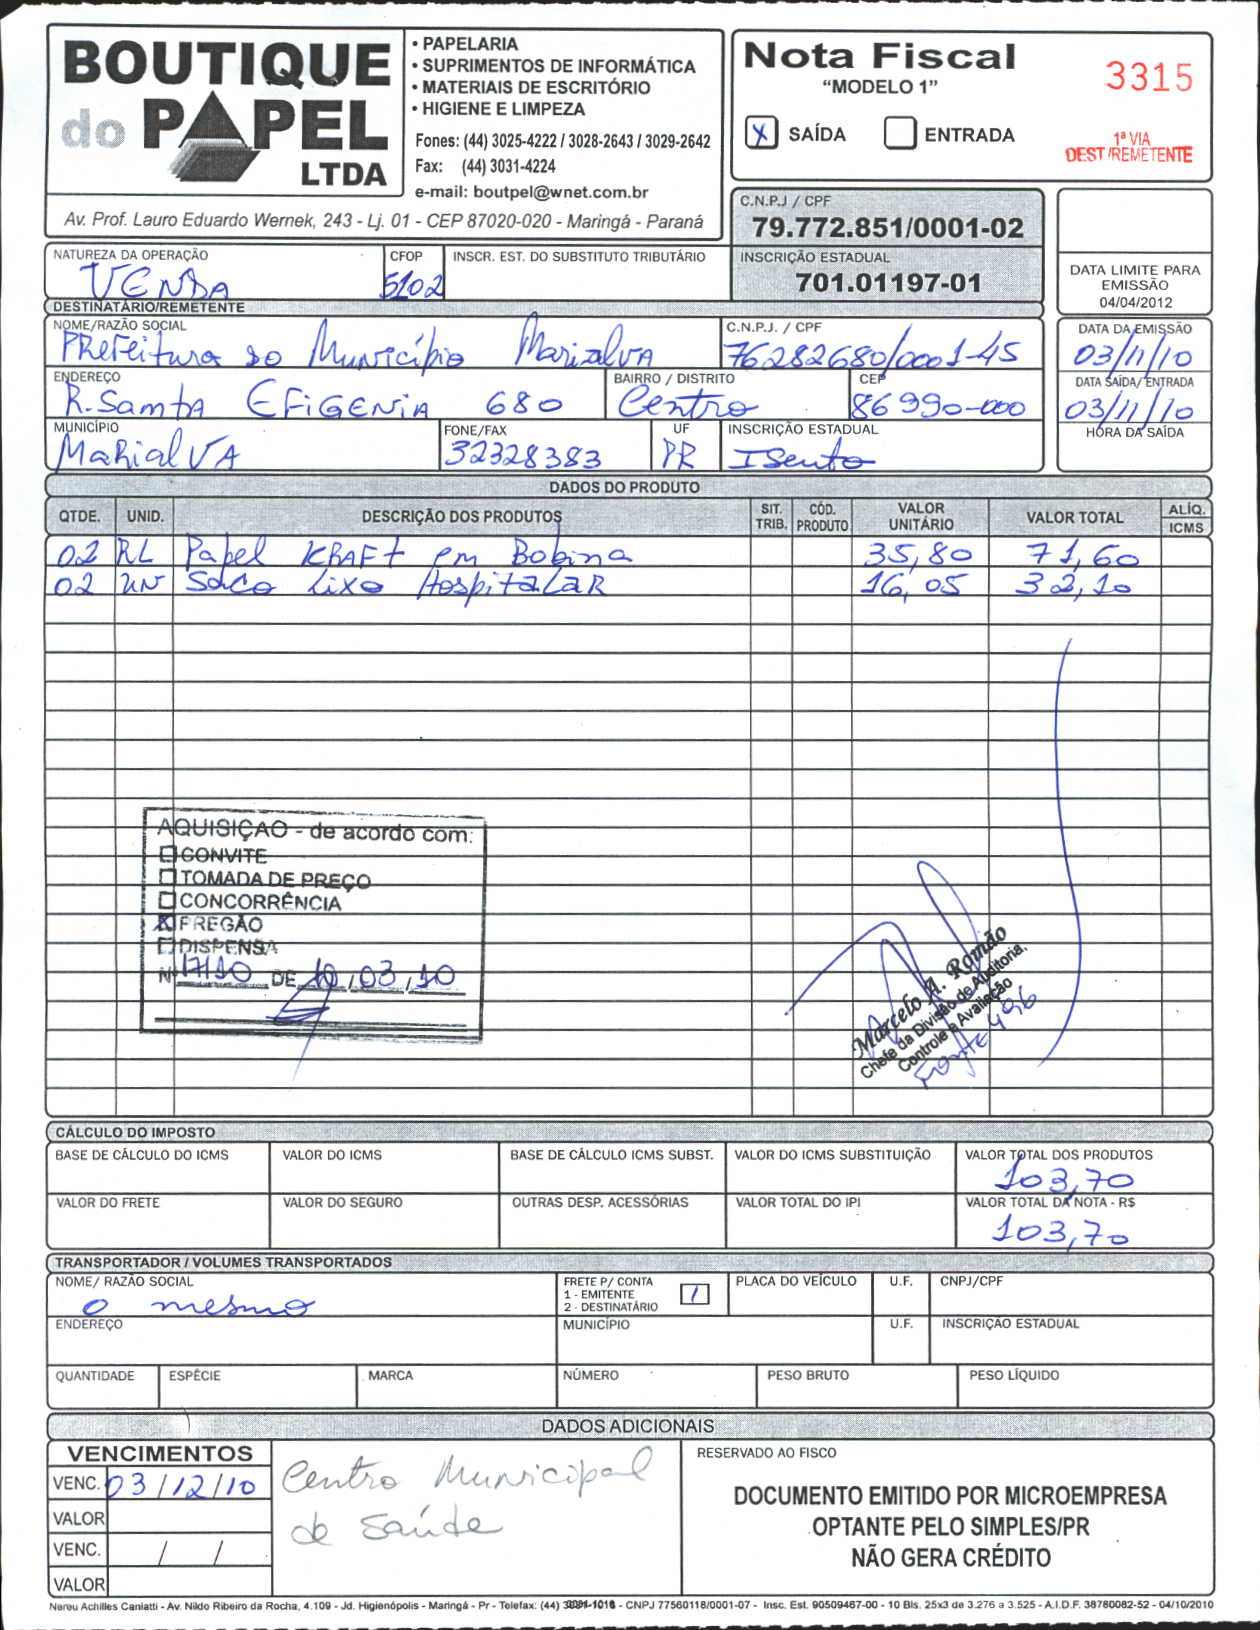 BOUTIQUE
do PAPEL
LTDA
• PAPELARIA
• SUPRIMENTOS DE INFORMÁTICA
• MATERIAIS DE ESCRITÓRIO
• HIGIENE E LIMPEZA
Fones: (44) 3025-4222 / 3028-2643 / 3029-2642
Fax: (44) 3031-4224
e-mail: boutpel@wnet.com.br
Av. Prof. Lauro Eduardo Wernek, 243 - Lj. 01 - CEP 87020-020 - Maringá - Paraná
Nota Fiscal
"MODELO 1"
3315
X SAÍDA ENTRADA
1ª VIA
DEST/REMETENTE
C.N.P.J / CPF
79.772.851/0001-02
INSCRIÇÃO ESTADUAL
701.01197-01
DATA LIMITE PARA
EMISSÃO
04/04/2012
NATUREZA DA OPERAÇÃO CFOP INSCR. EST. DO SUBSTITUTO TRIBUTÁRIO
VENDA 5102
DESTINATÁRIO/REMETENTE
NOME/RAZÃO SOCIAL C.N.P.J. / CPF DATA DA EMISSÃO
Prefeitura do Município Marialva 76282680/0001-45 03/11/10
ENDEREÇO BAIRRO / DISTRITO CEP DATA SAÍDA/ ENTRADA
R. Samta EFIGENIA 680 Centro 86990-000 03/11/10
MUNICÍPIO FONE/FAX UF INSCRIÇÃO ESTADUAL HORA DA SAÍDA
Marialva 32328383 PR Isento
DADOS DO PRODUTO
QTDE. UNID. DESCRIÇÃO DOS PRODUTOS SIT. TRIB. CÓD. PRODUTO VALOR UNITÁRIO VALOR TOTAL ALÍQ. ICMS
02 RL Papel KRAFt em Bobina 35,80 71,60
02 UN Saco Lixo Hospitalar 16,05 32,10
AQUISIÇÃO - de acordo com:
CONVITE
TOMADA DE PREÇO
CONCORRÊNCIA
X PREGÃO
DISPENSA
Nº 17/10 DE 10/03/10
Marcelo A. Romão
Chefe da Divisão de Auditoria,
Controle e Avaliação
Fonte 496
CÁLCULO DO IMPOSTO
BASE DE CÁLCULO DO ICMS VALOR DO ICMS BASE DE CÁLCULO ICMS SUBST. VALOR DO ICMS SUBSTITUIÇÃO VALOR TOTAL DOS PRODUTOS
103,70
VALOR DO FRETE VALOR DO SEGURO OUTRAS DESP. ACESSÓRIAS VALOR TOTAL DO IPI VALOR TOTAL DA NOTA - R$
103,70
TRANSPORTADOR / VOLUMES TRANSPORTADOS
NOME/ RAZÃO SOCIAL FRETE P/ CONTA PLACA DO VEÍCULO U.F. CNPJ/CPF
o mesmo 1 - EMITENTE 1
2 - DESTINATÁRIO
ENDEREÇO MUNICÍPIO U.F. INSCRIÇÃO ESTADUAL
QUANTIDADE ESPÉCIE MARCA NÚMERO PESO BRUTO PESO LÍQUIDO
DADOS ADICIONAIS
VENCIMENTOS
VENC. 03/12/10
VALOR
VENC. / /
VALOR
Centro Municipal
de Saúde
RESERVADO AO FISCO
DOCUMENTO EMITIDO POR MICROEMPRESA
OPTANTE PELO SIMPLES/PR
NÃO GERA CRÉDITO
Nereu Achilles Caniatti - Av. Nildo Ribeiro da Rocha, 4.109 - Jd. Higienópolis - Maringá - Pr - Telefax: (44) - CNPJ 77560118/0001-07 - Insc. Est. 90509467-00 - 10 Bls. 25x3 de 3.276 a 3.525 - A.I.D.F. 38780082-52 - 04/10/2010